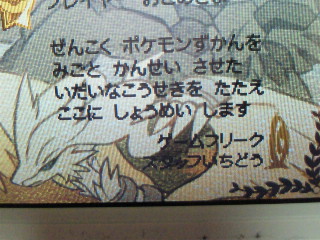 プレイヤー
ぜんこく ポケモンずかんを
みごと かんせい させた
いだいなこうせきを たたえ
ここに しょうめい します
ゲームフリーク
スタッフいちどう